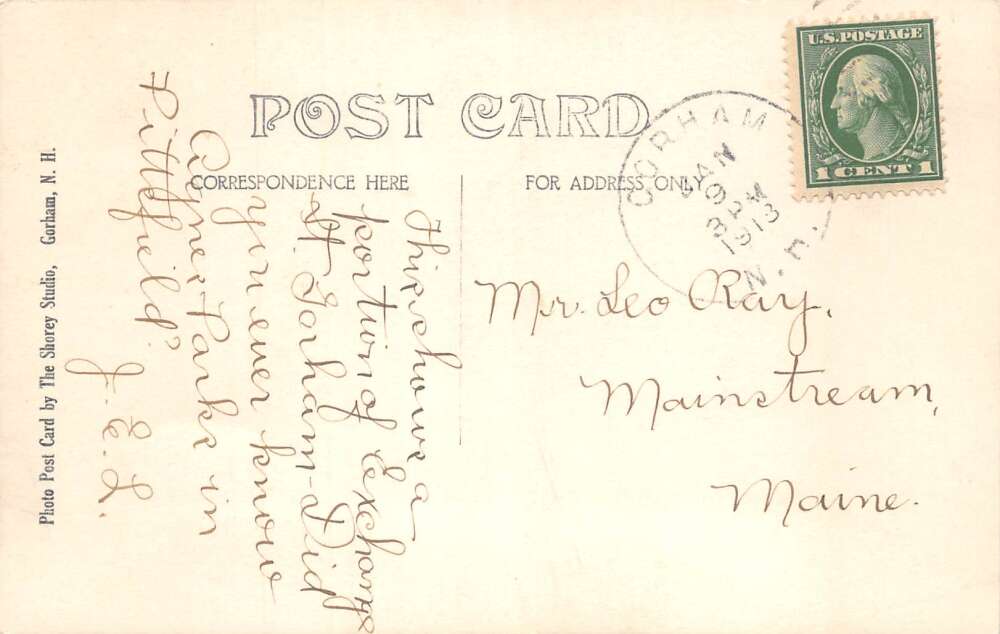 POST CARD
CORRESPONDENCE HERE
FOR ADDRESS ONLY
U.S. POSTAGE
1 CENT 1
GORHAM
JAN
9
3 PM
1913
N.H.
This shows a
portion of Exchange
St Gorham - Did
you ever know
Agnes Parks in
Pittsfield?
J. E. L.
Mr. Leo Ray,
Mainstream,
Maine.
Photo Post Card by The Shorey Studio, Gorham, N. H.